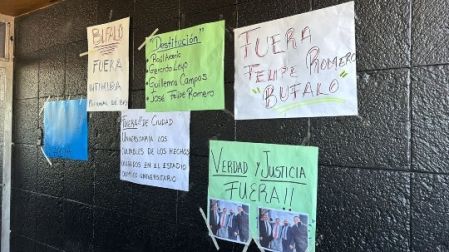 BUFALO
FUERA
INTIMIDA
PERSONAL DE
"Destitución"
Gerardo
Guillermo Campos
José Felipe Romero
FUERA
FELIPE ROMERO
"BUFALO"
FUERA!! DE CIUDAD
UNIVERSITARIA LOS
CULPABLES DE LOS HECHOS
EN EL ESTADIO
OLIMPICO UNIVERSITARIO
VERDAD Y JUSTICIA
FUERA!!